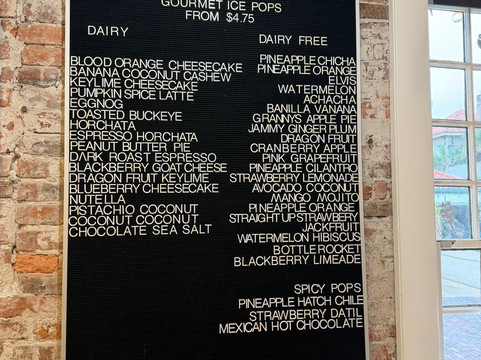 GOURMET ICE POPS
FROM $4.75
DAIRY
BLOOD ORANGE CHEESECAKE
BANANA COCONUT CASHEW
KEYLIME CHEESECAKE
PUMPKIN SPICE LATTE
EGGNOG
TOASTED BUCKEYE
HORCHATA
ESPRESSO HORCHATA
PEANUT BUTTER PIE
DARK ROAST ESPRESSO
BLACKBERRY GOAT CHEESE
DRAGON FRUIT KEYLIME
BLUEBERRY CHEESECAKE
NUTELLA
PISTACHIO COCONUT
COCONUT COCONUT
CHOCOLATE SEA SALT
DAIRY FREE
PINEAPPLE CHICHA
PINEAPPLE ORANGE
ELVIS
WATERMELON
ACHACHA
BANILLA VANANA
GRANNYS APPLE PIE
JAMMY GINGER PLUM
DRAGON FRUIT
CRANBERRY APPLE
PINK GRAPEFRUIT
PINEAPPLE CILANTRO
STRAWBERRY LEMONADE
AVOCADO COCONUT
MANGO MOJITO
PINEAPPLE ORANGE
STRAIGHT UP STRAWBERY
JACKFRUIT
WATERMELON HIBISCUS
BOTTLE ROCKET
BLACKBERRY LIMEADE
SPICY POPS
PINEAPPLE HATCH CHILE
STRAWBERRY DATIL
MEXICAN HOT CHOCOLATE